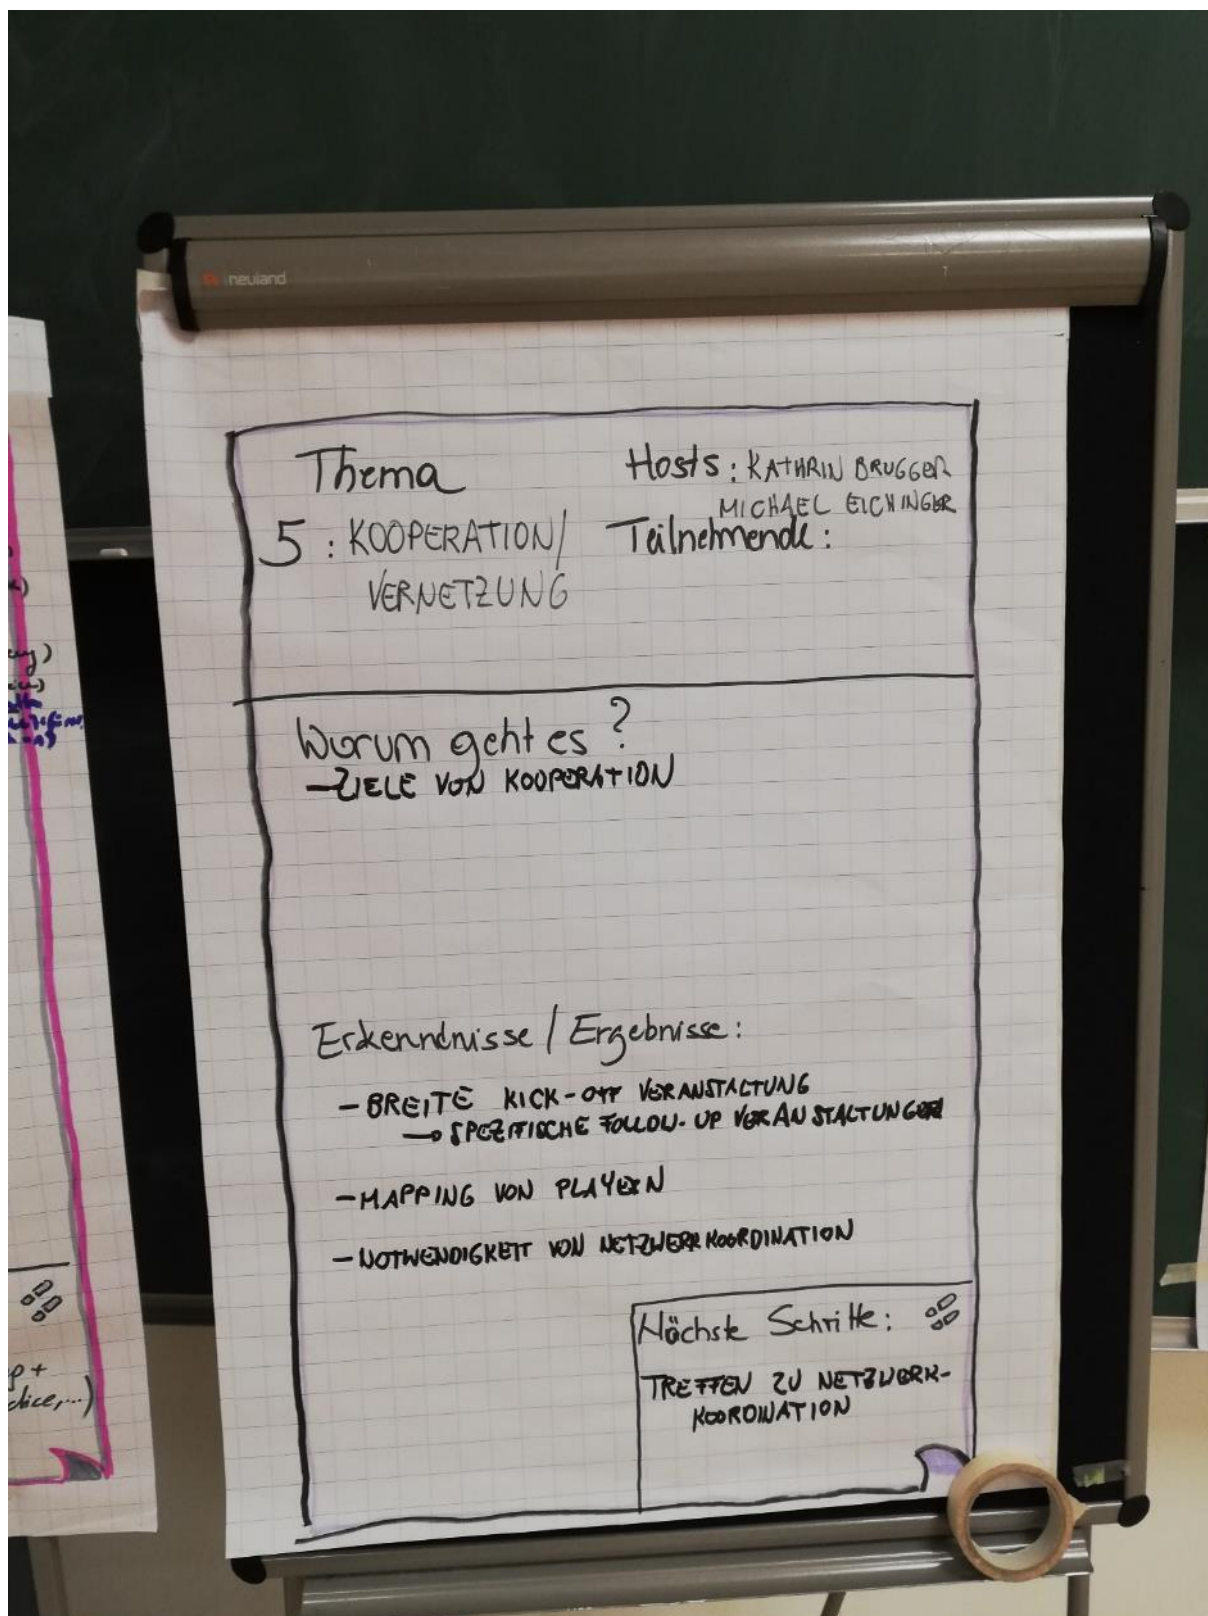 neuland
Thema
Hosts: KATHRIN BRUGGER
MICHAEL EICHINGER
5: KOOPERATION/
VERNETZUNG
Teilnehmende:
Worum geht es?
- ZIELE VON KOOPERATION
Erkenndnisse / Ergebnisse:
- BREITE KICK-OFF VERANSTALTUNG
→ SPEZIFISCHE FOLLOW-UP VERANSTALTUNGEN
- MAPPING VON PLAYERN
- NOTWENDIGKEIT VON NETZWERKKOORDINATION
Nächste Schritte:
TREFFEN ZU NETZWERK-
KOORDINATION